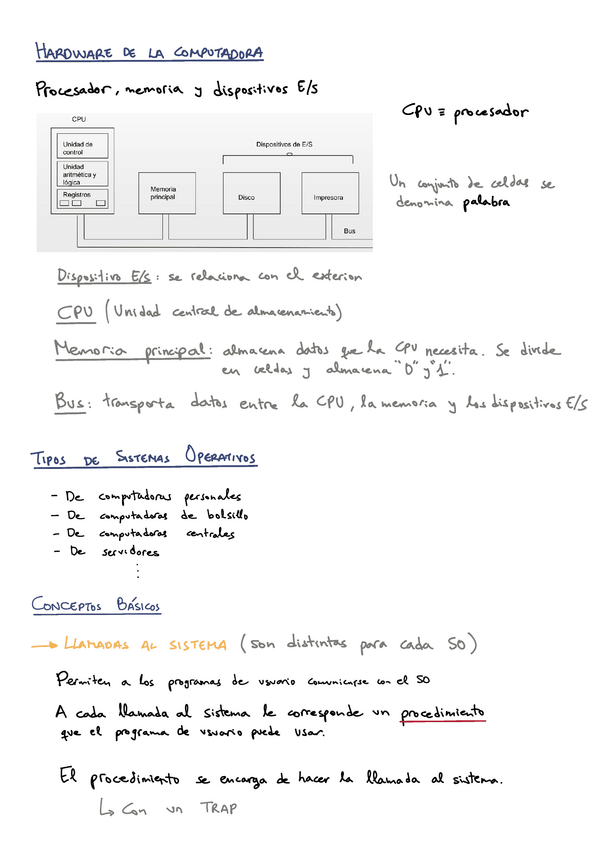 HARDWARE DE LA COMPUTADORA
Procesador, memoria y dispositivos E/S
CPU ≡ procesador
CPU
Unidad de
control
Unidad
aritmética y
lógica
Registros
Memoria
principal
Dispositivos de E/S
Disco
Impresora
Bus
Un conjunto de celdas se
denomina palabra
Dispositivo E/S: se relaciona con el exterior
CPU (Unidad central de almacenamiento)
Memoria principal: almacena datos que la CPU necesita. Se divide
en celdas y almacena "0" y "1".
Bus: transporta datos entre la CPU, la memoria y los dispositivos E/S
TIPOS DE SISTEMAS OPERATIVOS
- De computadoras personales
- De computadoras de bolsillo
- De computadoras centrales
- De servidores
⋮
CONCEPTOS BÁSICOS
→ LLAMADAS AL SISTEMA (son distintas para cada SO)
Permiten a los programas de usuario comunicarse con el SO
A cada llamada al sistema le corresponde un procedimiento
que el programa de usuario puede usar.
El procedimiento se encarga de hacer la llamada al sistema.
↳ Con un TRAP